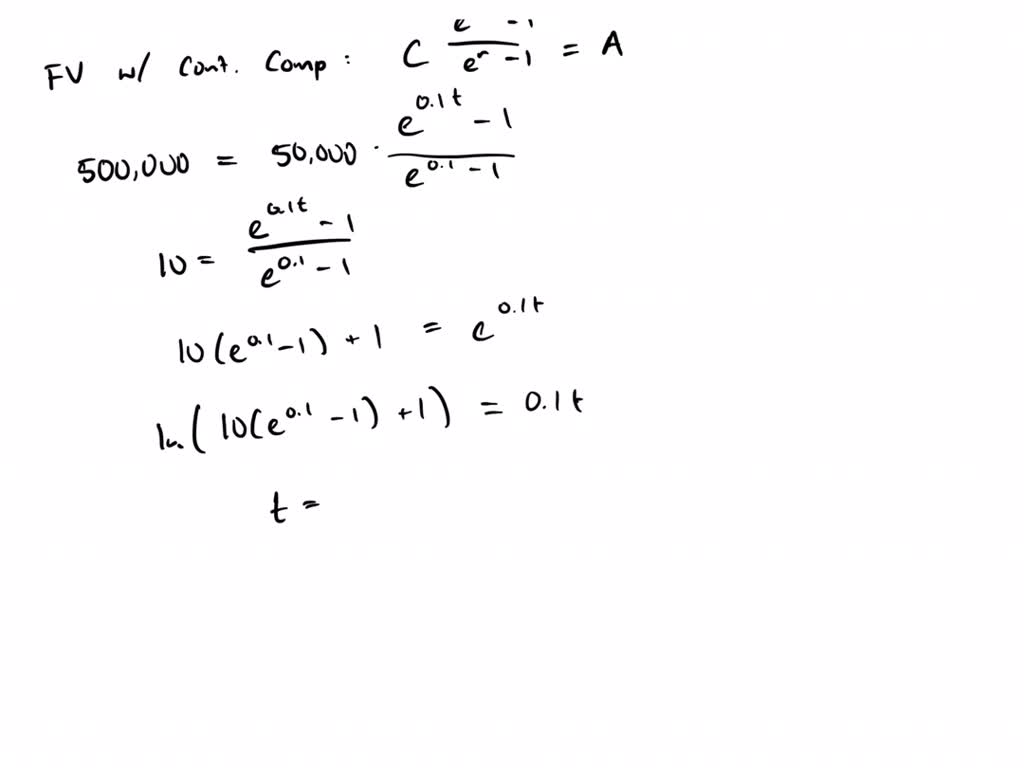 FV w/ Cont. Comp : C (e -1)/(e^r -1) = A
500,000 = 50,000 · (e^0.1t - 1)/(e^0.1 - 1)
10 = (e^0.1t - 1)/(e^0.1 - 1)
10(e^0.1 - 1) + 1 = e^0.1t
ln(10(e^0.1 - 1) + 1) = 0.1t
t =